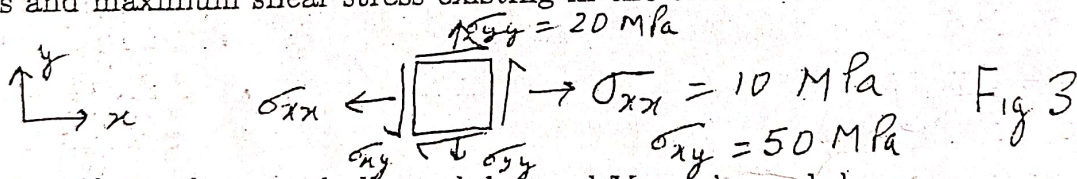 s and maximum shear stress existing in the
σyy = 20 MPa
y
x
σxx
σxx = 10 MPa
Fig 3
σxy
σyy
σxy = 50 MPa